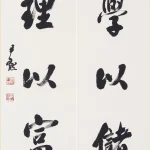 學以儲
理以富